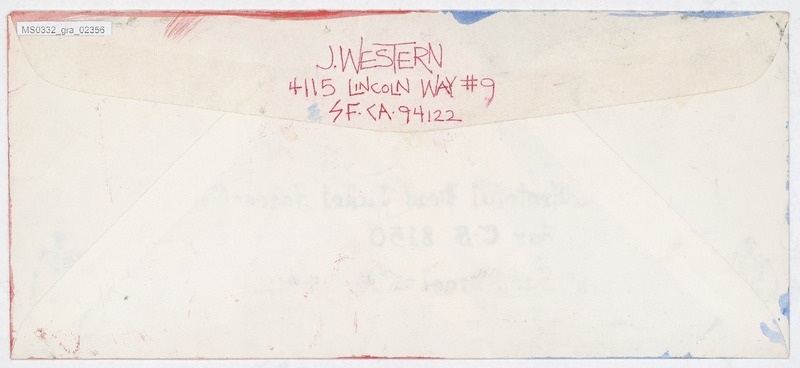 MS0332_gra_02356
J. WESTERN
4115 LINCOLN WAY #9
SF. CA. 94122
C-S 8150